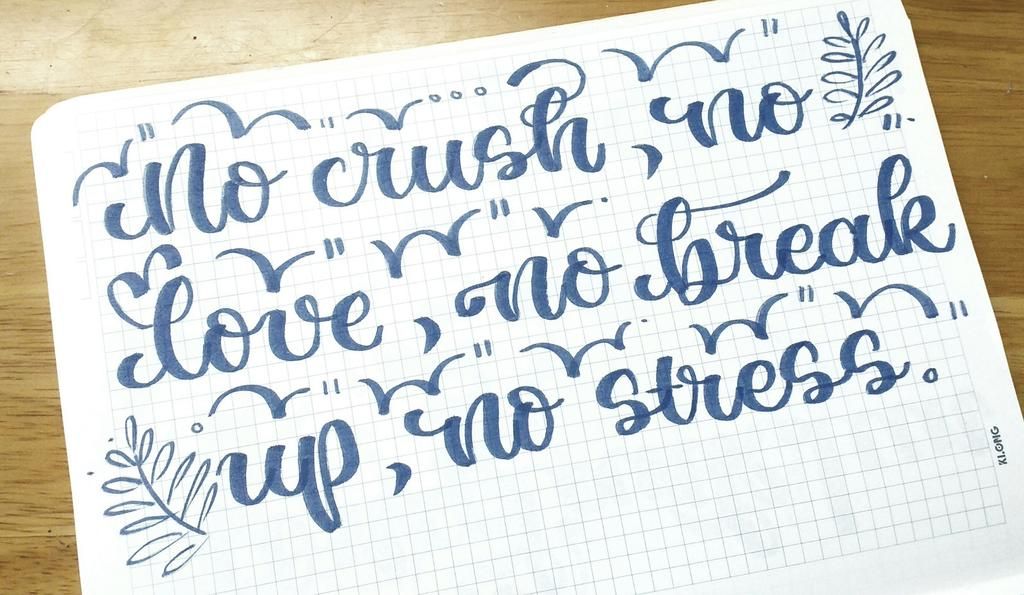 No crush, no
love, no break
up, no stress.
KLONG